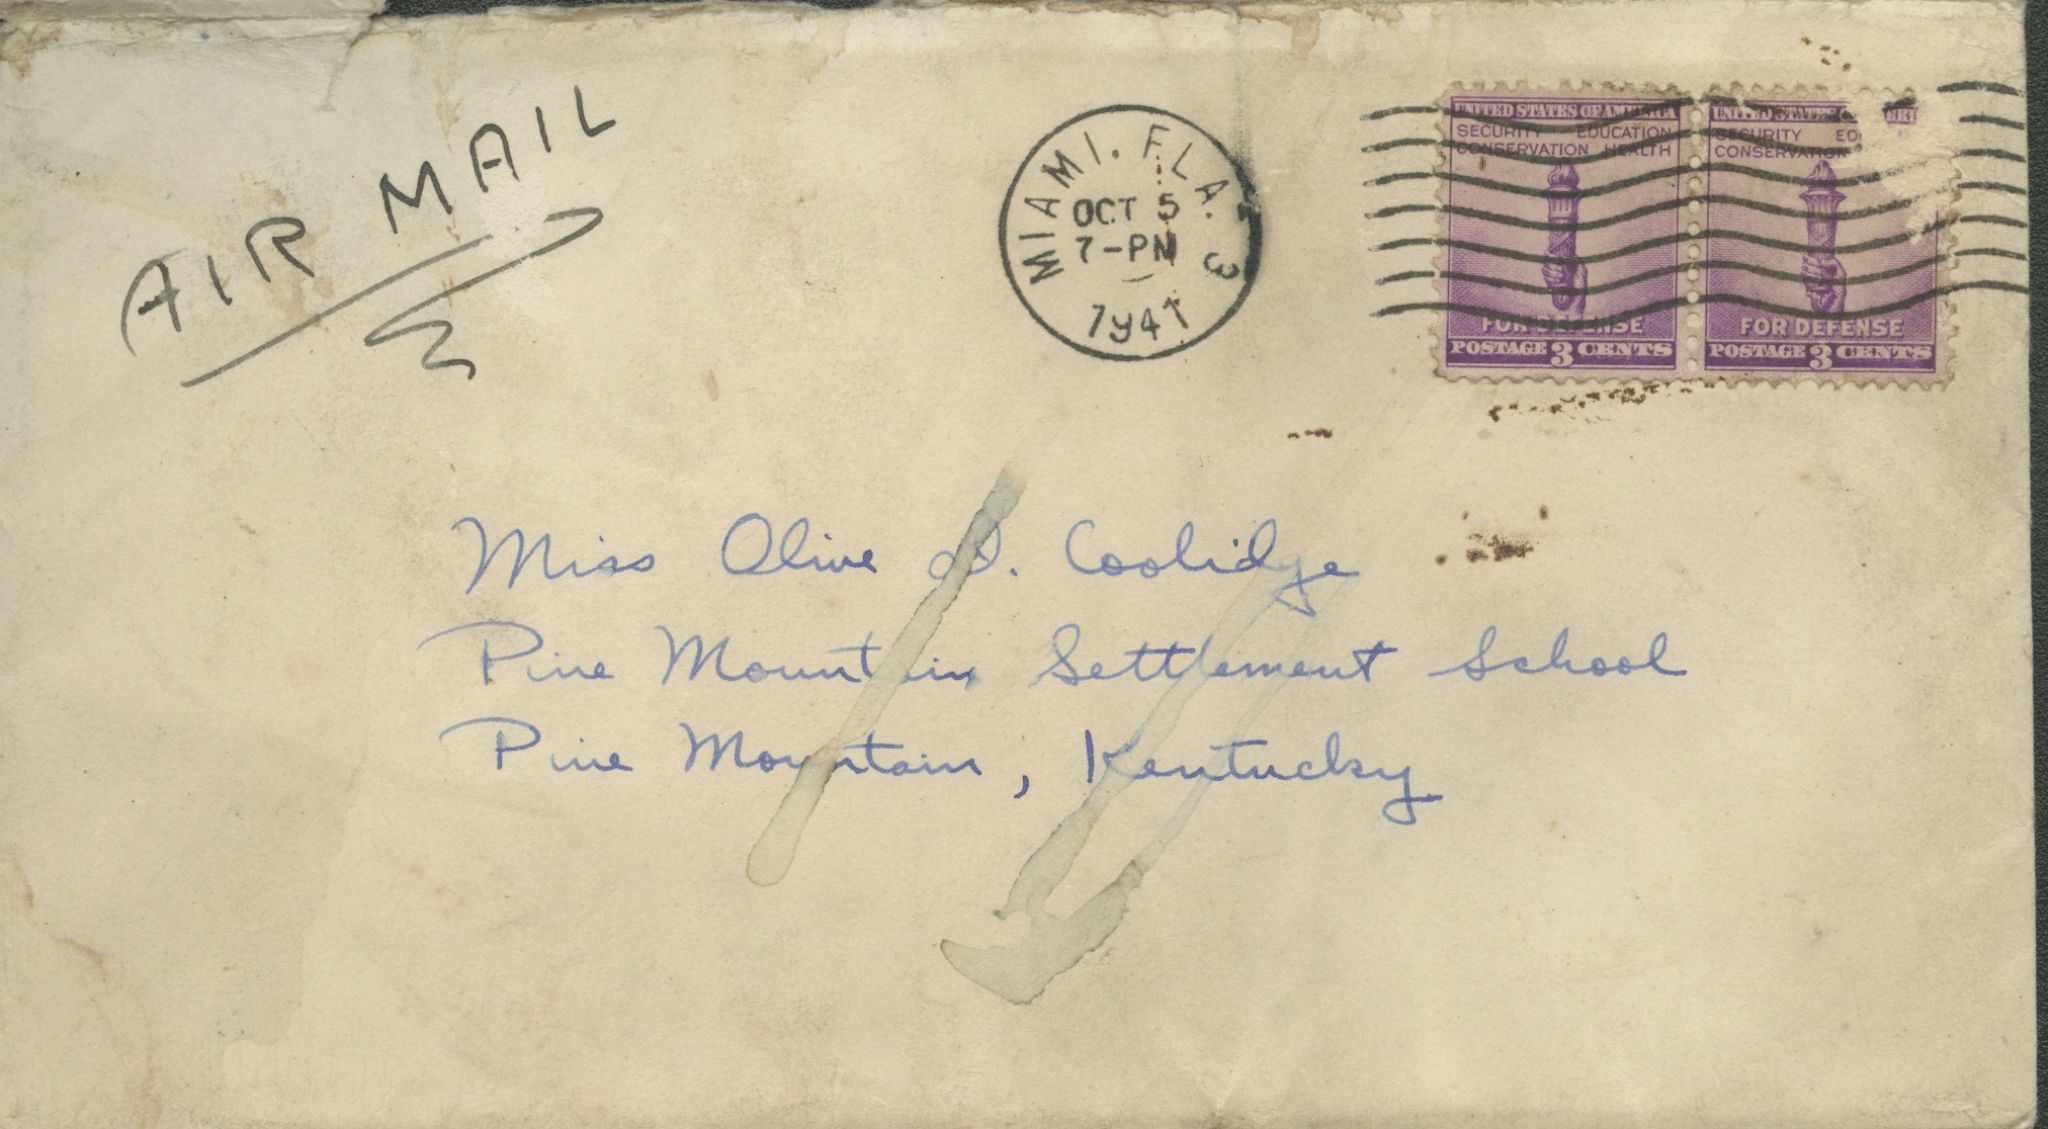 AIR MAIL
MIAMI, FLA. 3
OCT 5
7-PM
1941
UNITED STATES OF AMERICA
SECURITY EDUCATION
CONSERVATION HEALTH
FOR DEFENSE
POSTAGE 3 CENTS
UNITED STATES
SECURITY ED
CONSERVATION
FOR DEFENSE
POSTAGE 3 CENTS
Miss Olive D. Coolidge
Pine Mountain Settlement School
Pine Mountain, Kentucky